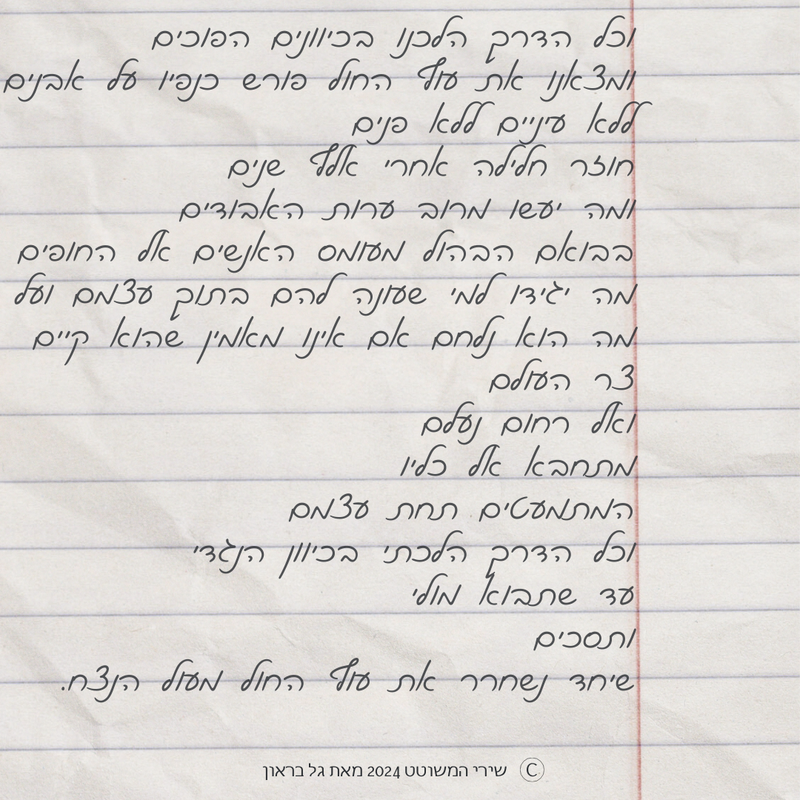 וכל הדרך הלכנו בכיוונים הפוכים
ומצאנו את עוף החול פורש כנפיו על אבנים
ללא עיניים ללא פנים
חוזר חלילה אחרי אלף שנים
ומה יעשו מרוב ערות האבודים
בבואם הבהול מעומס האנשים אל החופים
מה יגידו למי שעונה להם בתוך עצמם ועל
מה הוא נלחם אם אינו מאמין שהוא קיים
צר העולם
ואל רחום נעלם
מתחבא אל כליו
המתמעטים תחת עצמם
וכל הדרך הלכתי בכיוון הנגדי
עד שתבוא מולי
ותסכים
שיחד נשחרר את עוף החול מעול הנצח.
© שירי המשוטט 2024 מאת גל בראון